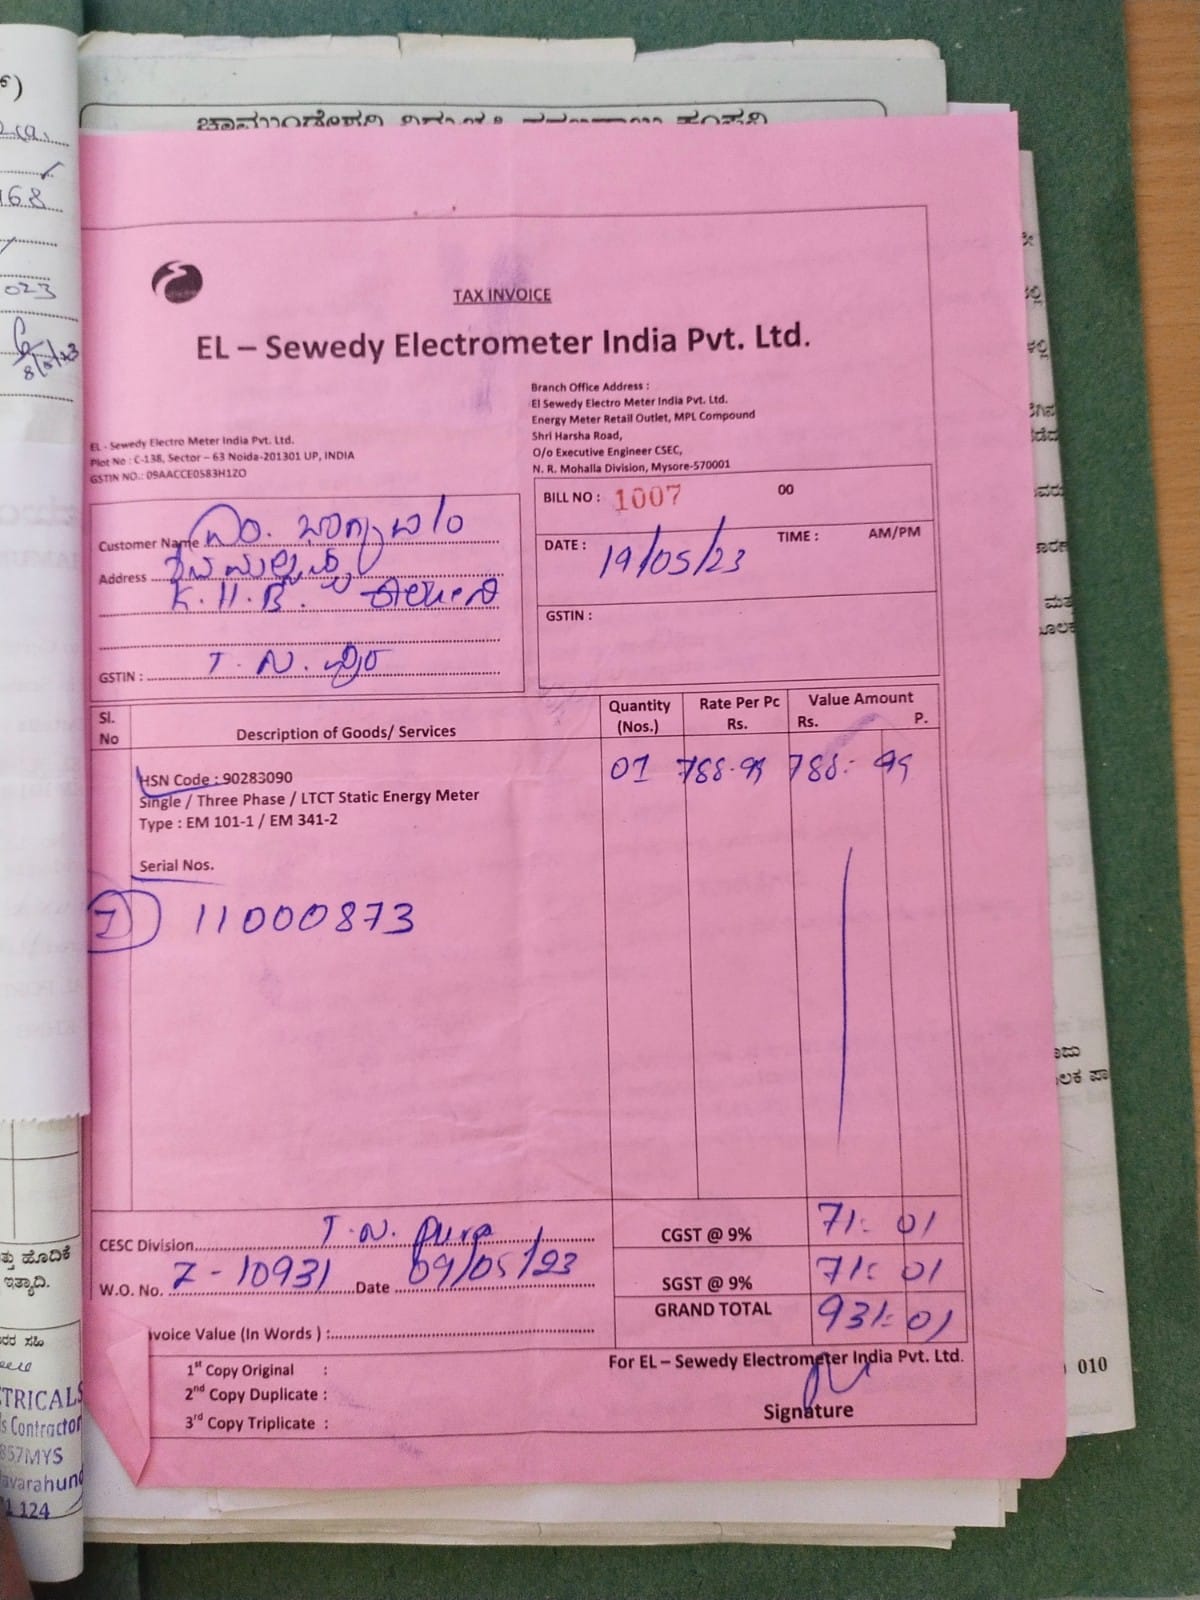 168
023
8/5/23
TAX INVOICE
EL – Sewedy Electrometer India Pvt. Ltd.
Branch Office Address :
El Sewedy Electro Meter India Pvt. Ltd.
Energy Meter Retail Outlet, MPL Compound
Shri Harsha Road,
O/o Executive Engineer CSEC,
N. R. Mohalla Division, Mysore-570001
EL - Sewedy Electro Meter India Pvt. Ltd.
Plot No : C-138, Sector – 63 Noida-201301 UP, INDIA
GSTIN NO.: 09AACCE0583H1ZO
BILL NO : 1007 00
DATE : 19/05/23 TIME : AM/PM
GSTIN :
Customer Name
Address
K.H.B. ಕಾಲೋನಿ
GSTIN : T. N. ಪುರ
Sl. No Description of Goods/ Services Quantity (Nos.) Rate Per Pc Rs. Value Amount Rs. P.
HSN Code : 90283090 01 788.99 788.99
Single / Three Phase / LTCT Static Energy Meter
Type : EM 101-1 / EM 341-2
Serial Nos.
1 11000873
CESC Division T.N. pura CGST @ 9% 71.01
W.O. No. 7-10931 Date 09/05/23 SGST @ 9% 71.01
GRAND TOTAL 931.01
nvoice Value (In Words ) :
1st Copy Original :
2nd Copy Duplicate :
3rd Copy Triplicate :
For EL – Sewedy Electrometer India Pvt. Ltd.
Signature
ತ್ತು ಹೊದಿಕೆ
ಇತ್ಯಾದಿ.
ಸಹಿ
TRICALS
s Contractor
857MYS
avarahund
124
010